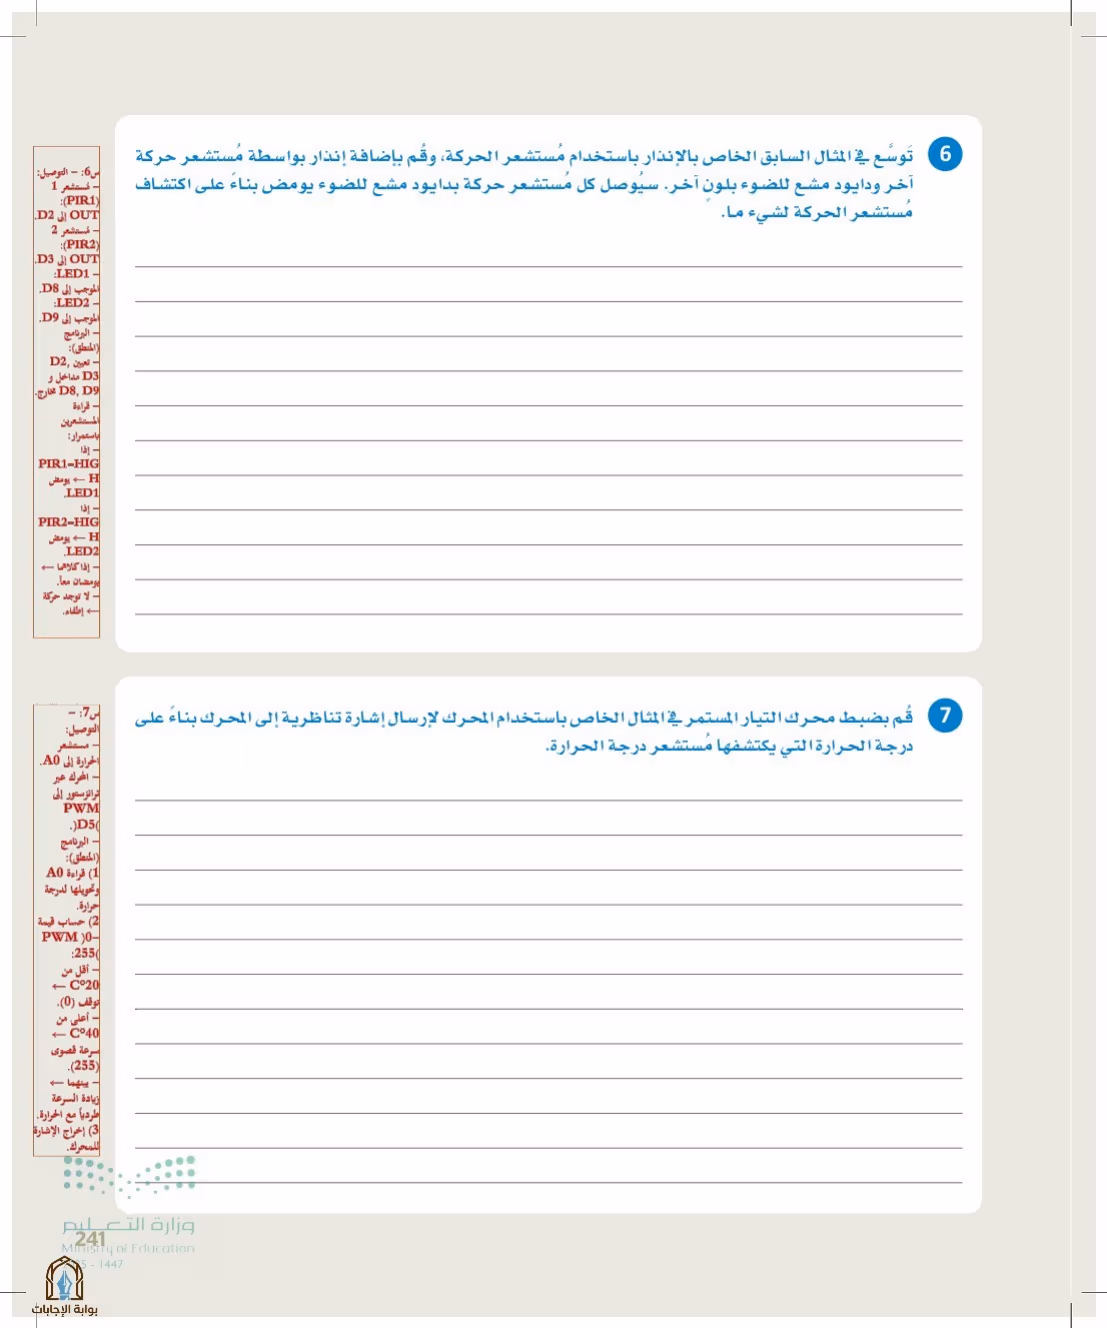 6
تَوسَّع في المثال السابق الخاص بالإنذار باستخدام مُستشعر الحركة، وقُم بإضافة إنذار بواسطة مُستشعر حركة
آخر ودايود مشع للضوء بلونٍ آخر. سيُوصل كل مُستشعر حركة بدايود مشع للضوء يومض بناءً على اكتشاف
مُستشعر الحركة لشيء ما.
س6: – التوصيل:
– مُستشعر 1
(PIR1):
OUT إلى D2.
– مُستشعر 2
(PIR2):
OUT إلى D3.
– LED1:
الموجب إلى D8.
– LED2:
الموجب إلى D9.
– البرنامج
(المنطق):
– تعيين D2,
D3 مداخل و
D8, D9 مخارج.
– قراءة
المستشعرين
باستمرار:
– إذا
PIR1=HIG
H ← يومض
LED1.
– إذا
PIR2=HIG
H ← يومض
LED2.
– إذا كلاهما ←
يومضان معاً.
– لا توجد حركة
← إطفاء.
7
قُم بضبط محرك التيار المستمر في المثال الخاص باستخدام المحرك لإرسال إشارة تناظرية إلى المحرك بناءً على
درجة الحرارة التي يكتشفها مُستشعر درجة الحرارة.
س7: –
التوصيل:
– مستشعر
الحرارة إلى A0.
– المحرك عبر
ترانزستور إلى
PWM
(D5).
– البرنامج
(المنطق):
1) قراءة A0
وتحويلها لدرجة
حرارة.
2) حساب قيمة
PWM (0–
255):
– أقل من
20°C ←
توقف (0).
– أعلى من
40°C ←
سرعة قصوى
(255).
– بينهما ←
زيادة السرعة
طردياً مع الحرارة.
3) إخراج الإشارة
للمحرك.
وزارة التعليم
241
Ministry of Education
5 - 1447
بوابة الإجابات